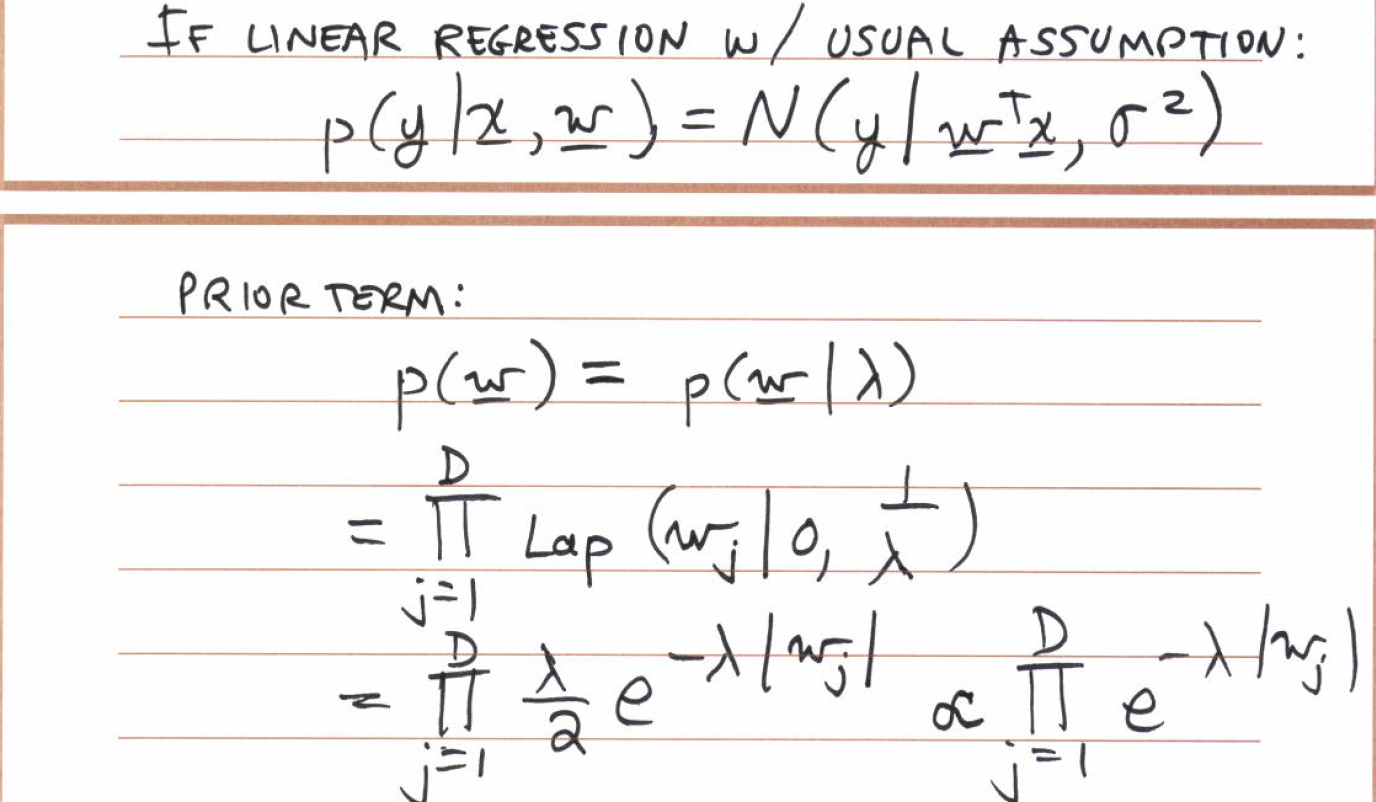 IF LINEAR REGRESSION W/ USUAL ASSUMPTION:
p(y|x̲, w̲) = N(y | w̲ᵀx̲, σ²)
PRIOR TERM:
p(w̲) = p(w̲|λ)
= ∏_{j=1}^{D} Lap (w_j | 0, 1/λ)
= ∏_{j=1}^{D} λ/2 e^{-λ|w_j|} ∝ ∏_{j=1}^{D} e^{-λ|w_j|}